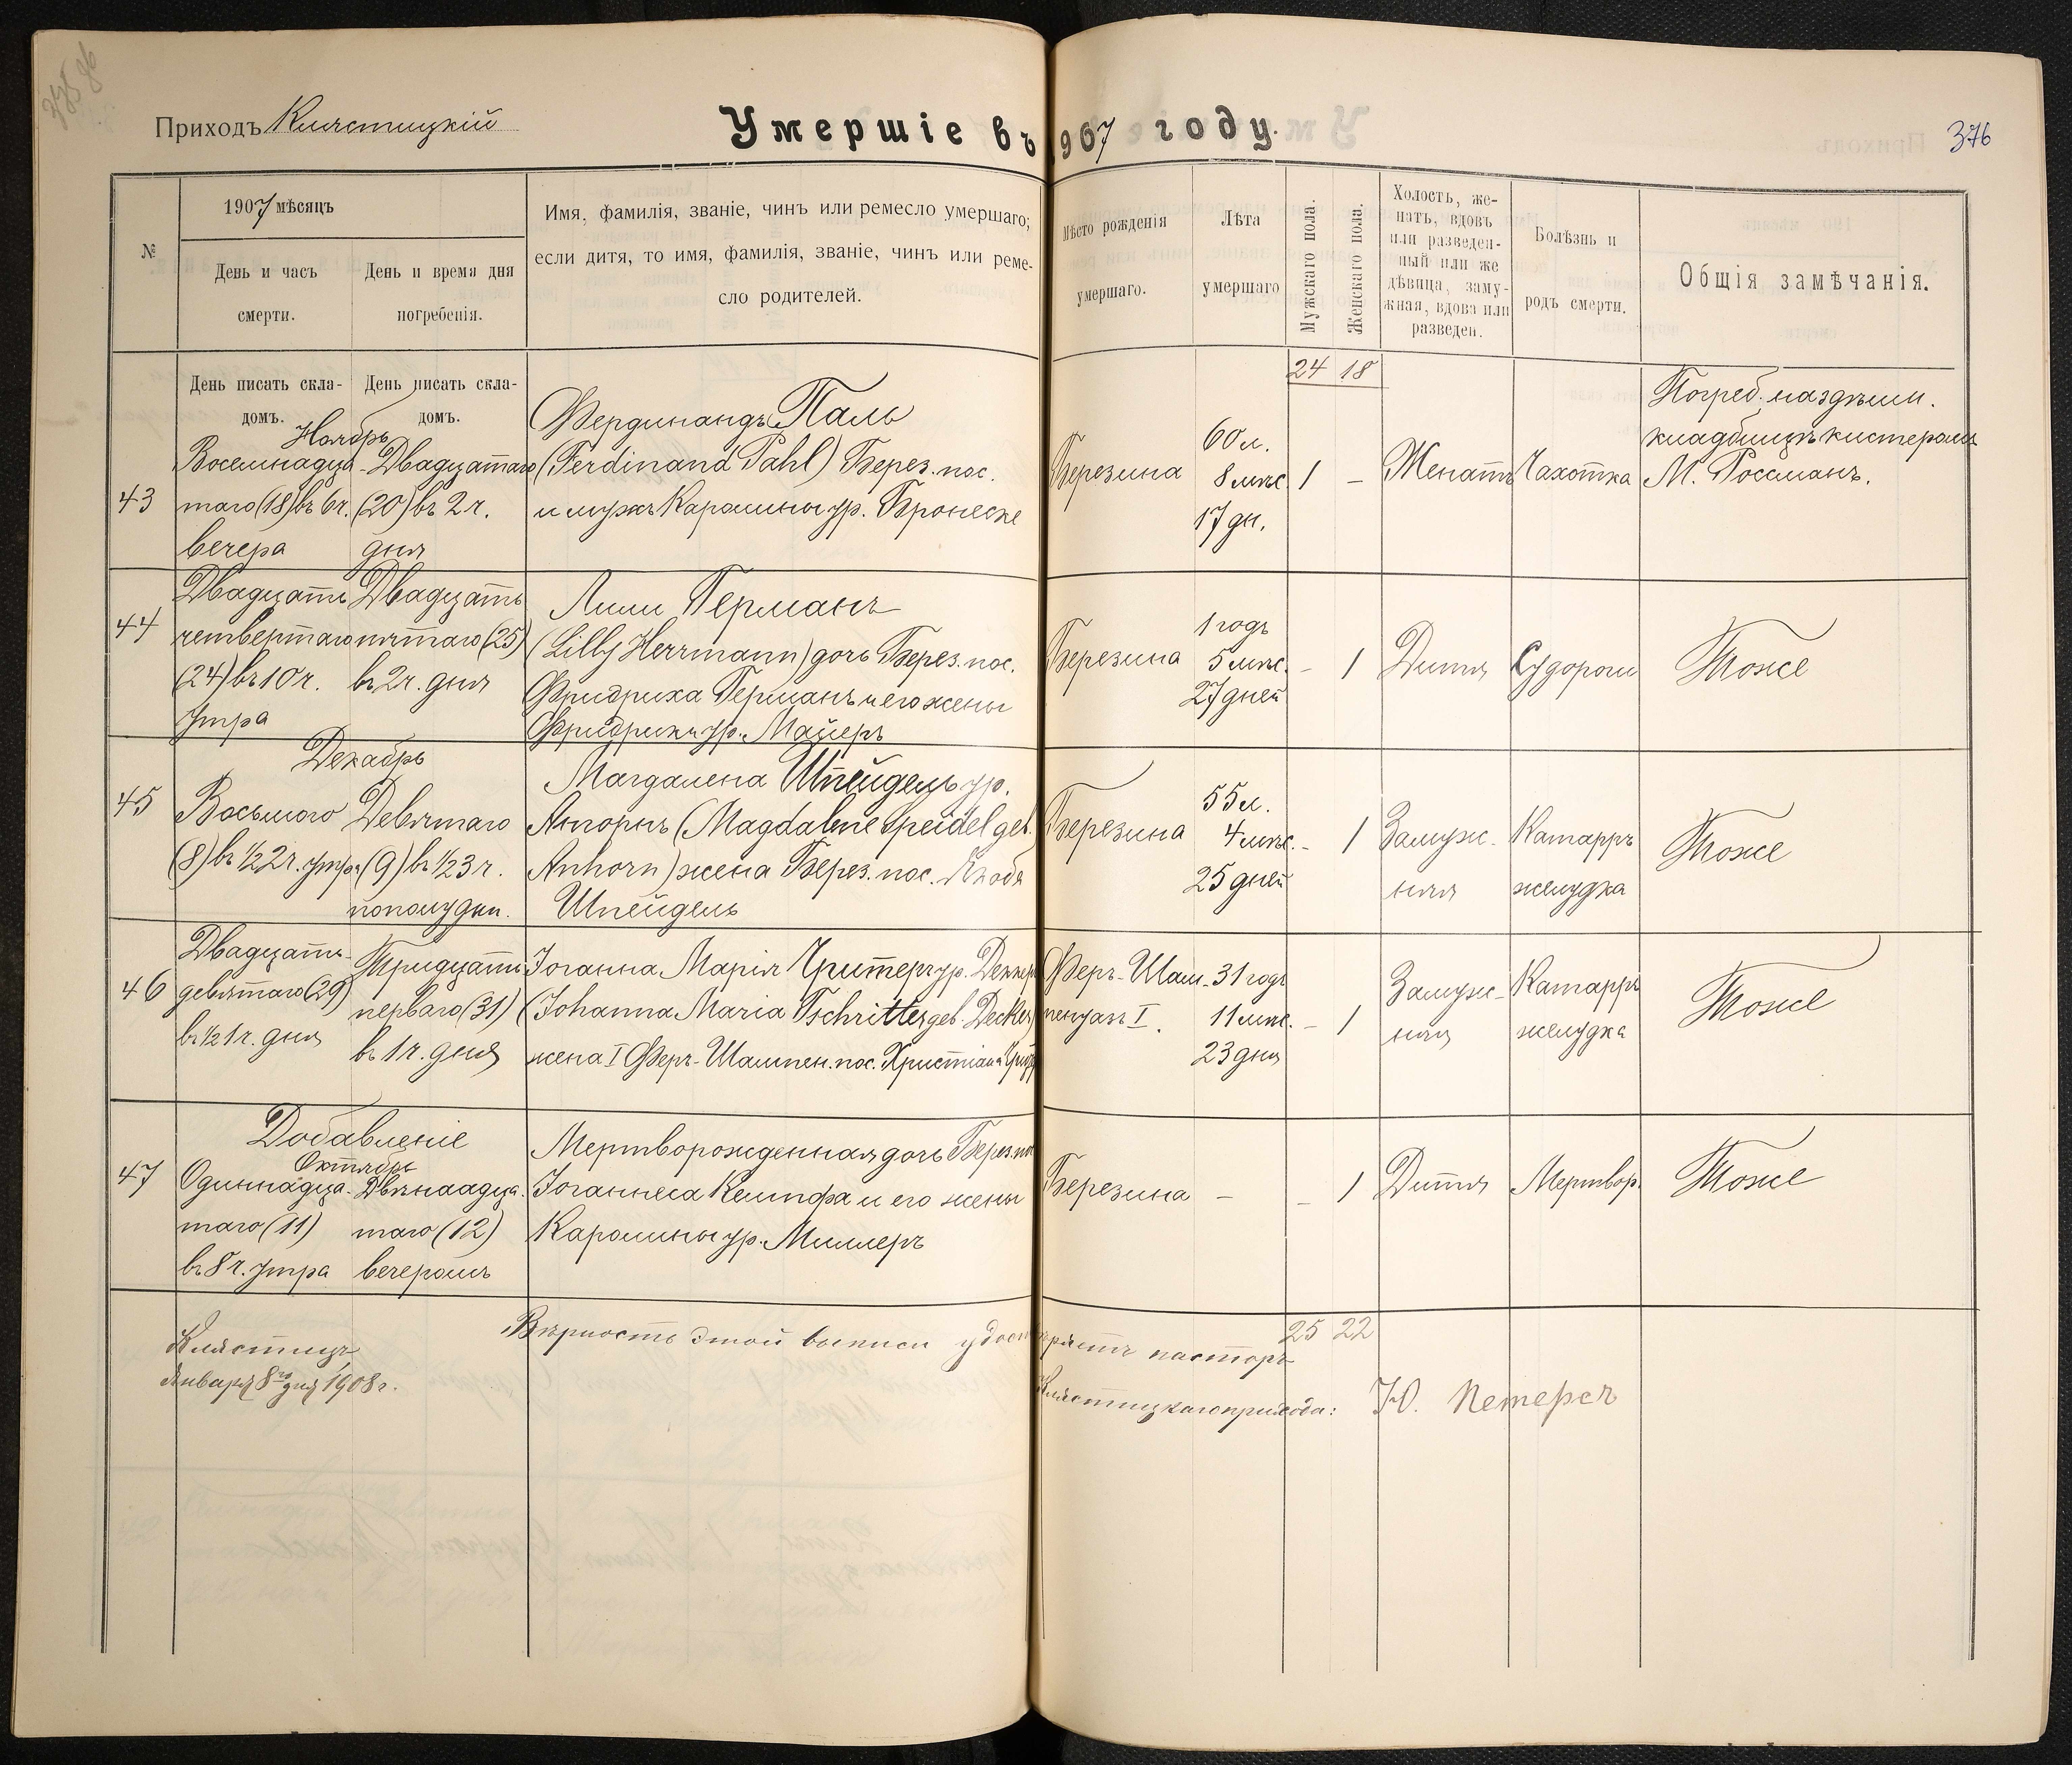 Приходъ Клястицкій
Умершіе въ 1907 году.
376
№
1907 мѣсяцъ
День и часъ смерти.
День и время дня погребенія.
Имя, фамилія, званіе, чинъ или ремесло умершаго;
если дитя, то имя, фамилія, званіе, чинъ или реме-
сло родителей.
Мѣсто рожденія
умершаго.
Лѣта
умершаго
Мужскаго пола.
Женскаго пола.
Холостъ, же-
натъ, вдовъ
или разведен-
ный или же
дѣвица, заму-
жная, вдова или
разведен.
Болѣзнь и
родъ смерти.
Общія замѣчанія.
День писать скла-
домъ.
День писать скла-
домъ.
24 18
Ноябрь
43
Восемнадца-
таго (18) въ 6 ч.
вечера
Двадцатаго
(20) въ 2 ч.
дня
Фердинандъ Паль
(Ferdinand Pahl) Берез. пос.
и мужъ Каролины ур. Бронеске
Березина
60 л.
8 мѣс.
17 дн.
1
–
Женатъ
Чахотка
Погреб. на здѣшн.
кладбищѣ кистеромъ
М. Россманъ.
44
Двадцать
четвертаго
(24) въ 10 ч.
утра
Двадцать
пятаго (25)
въ 2 ч. дня
Лили Германъ
(Lilly Herrmann) дочь Берез. пос.
Фридриха Германъ и его жены
Фридрики ур. Майеръ
Березина
1 годъ
5 мѣс.
27 дней
–
1
Дитя
Судороги
Тоже
Декабрь
45
Восьмого
(8) въ ½ 2 ч. утра
Девятаго
(9) въ ½ 3 ч.
пополудни.
Магдалена Шпейдель ур.
Ангорнъ (Magdalene Speidel geb.
Anhorn) жена Берез. пос. Якоба
Шпейдель
Березина
55 л.
4 мѣс.
25 дней
–
1
Замуж-
няя
Катарръ
желудка
Тоже
46
Двадцать
девятаго (29)
въ ½ 1 ч. дня
Тридцать
перваго (31)
въ 1 ч. дня
Іоганна Марія Чритеръ ур. Деккеръ
(Johanna Maria Tschritter geb. Decker)
жена I Феръ-Шампен. пос. Христіана
Феръ-Шам-
пенуазъ I.
31 годъ
11 мѣс.
23 дня
–
1
Замуж-
няя
Катарръ
желудка
Тоже
Добавленіе
Октябрь
47
Одиннадца-
таго (11)
въ 8 ч. утра
Двѣнаадца-
таго (12)
вечеромъ
Мертворожденная дочь Берез. пос.
Іоганнеса Кемпфа и его жены
Каролины ур. Миллеръ
Березина
–
–
1
Дитя
Мертвор.
Тоже
25 22
Клястицъ,
Января 8го дня 1908 г.
Вѣрность этой выписи удостовѣряетъ пасторъ
Клястицкаго прихода: Ю. Петерсъ